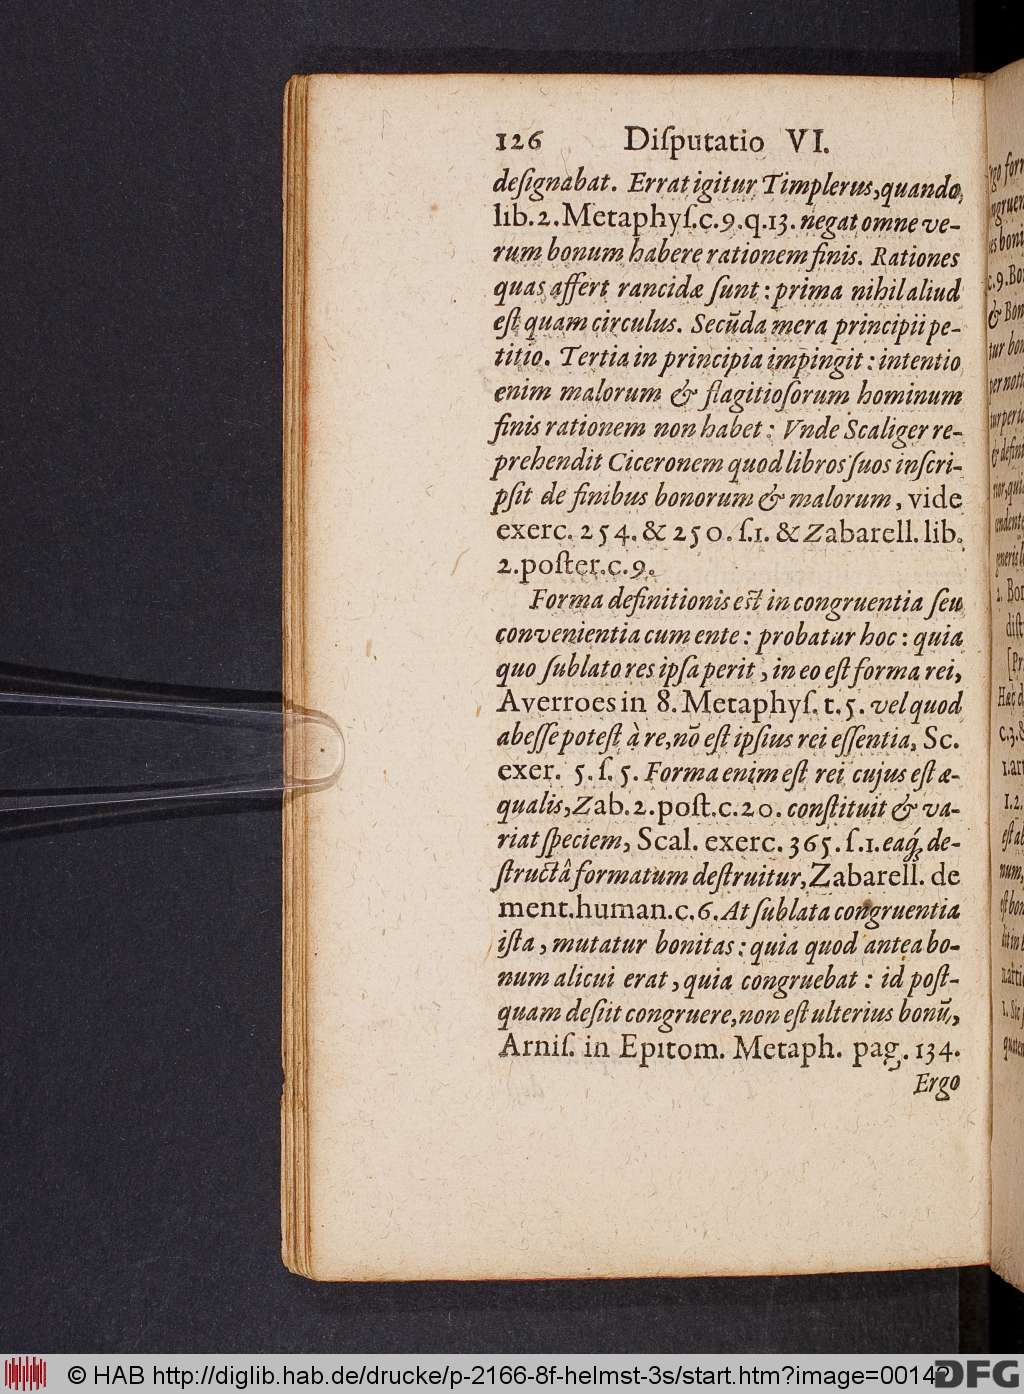 126 Diſputatio VI.
deſignabat. Errat igitur Timplerus, quando
lib. 2. Metaphyſ. c. 9. q. 13. negat omne ve-
rum bonum habere rationem finis. Rationes
quas affert rancidæ ſunt: prima nihil aliud
eſt quam circulus. Secūda mera principii pe-
titio. Tertia in principia impingit: intentio
enim malorum & flagitioſorum hominum
finis rationem non habet: Vnde Scaliger re-
prehendit Ciceronem quod libros ſuos inſcri-
pſit de finibus bonorum & malorum, vide
exerc. 254. & 250. ſ. 1. & Zabarell. lib.
2. poſter. c. 9.
Forma definitionis eſt in congruentia ſeu
convenientia cum ente: probatur hoc: quia
quo ſublato res ipſa perit, in eo eſt forma rei,
Averroes in 8. Metaphyſ. t. 5. vel quod
abeſſe poteſt à re, nō eſt ipſius rei eſſentia, Sc.
exer. 5. ſ. 5. Forma enim eſt rei cujus eſt æ-
qualis, Zab. 2. poſt. c. 20. conſtituit & va-
riat ſpeciem, Scal. exerc. 365. ſ. 1. eaq́; de-
ſtructâ formatum deſtruitur, Zabarell. de
ment. human. c. 6. At ſublata congruentia
iſta, mutatur bonitas: quia quod antea bo-
num alicui erat, quia congruebat: id poſt-
quam deſiit congruere, non eſt ulterius bonū,
Arniſ. in Epitom. Metaph. pag. 134.
Ergo
© HAB http://diglib.hab.de/drucke/p-2166-8f-helmst-3s/start.htm?image=00142
DFG